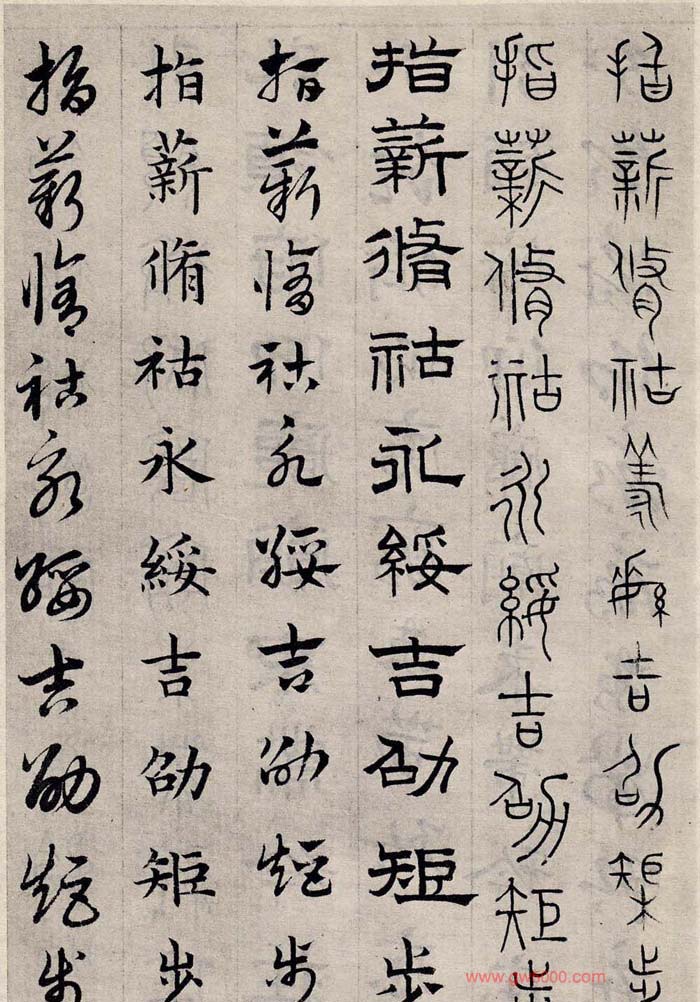 指薪脩祜永綏吉劭矩步
指薪脩祜永綏吉劭矩步
指薪脩祜永綏吉劭矩步
指薪脩祜永綏吉劭矩步
指薪脩祜永綏吉劭矩步
指薪脩祜永綏吉劭矩步
www.gw5000.com